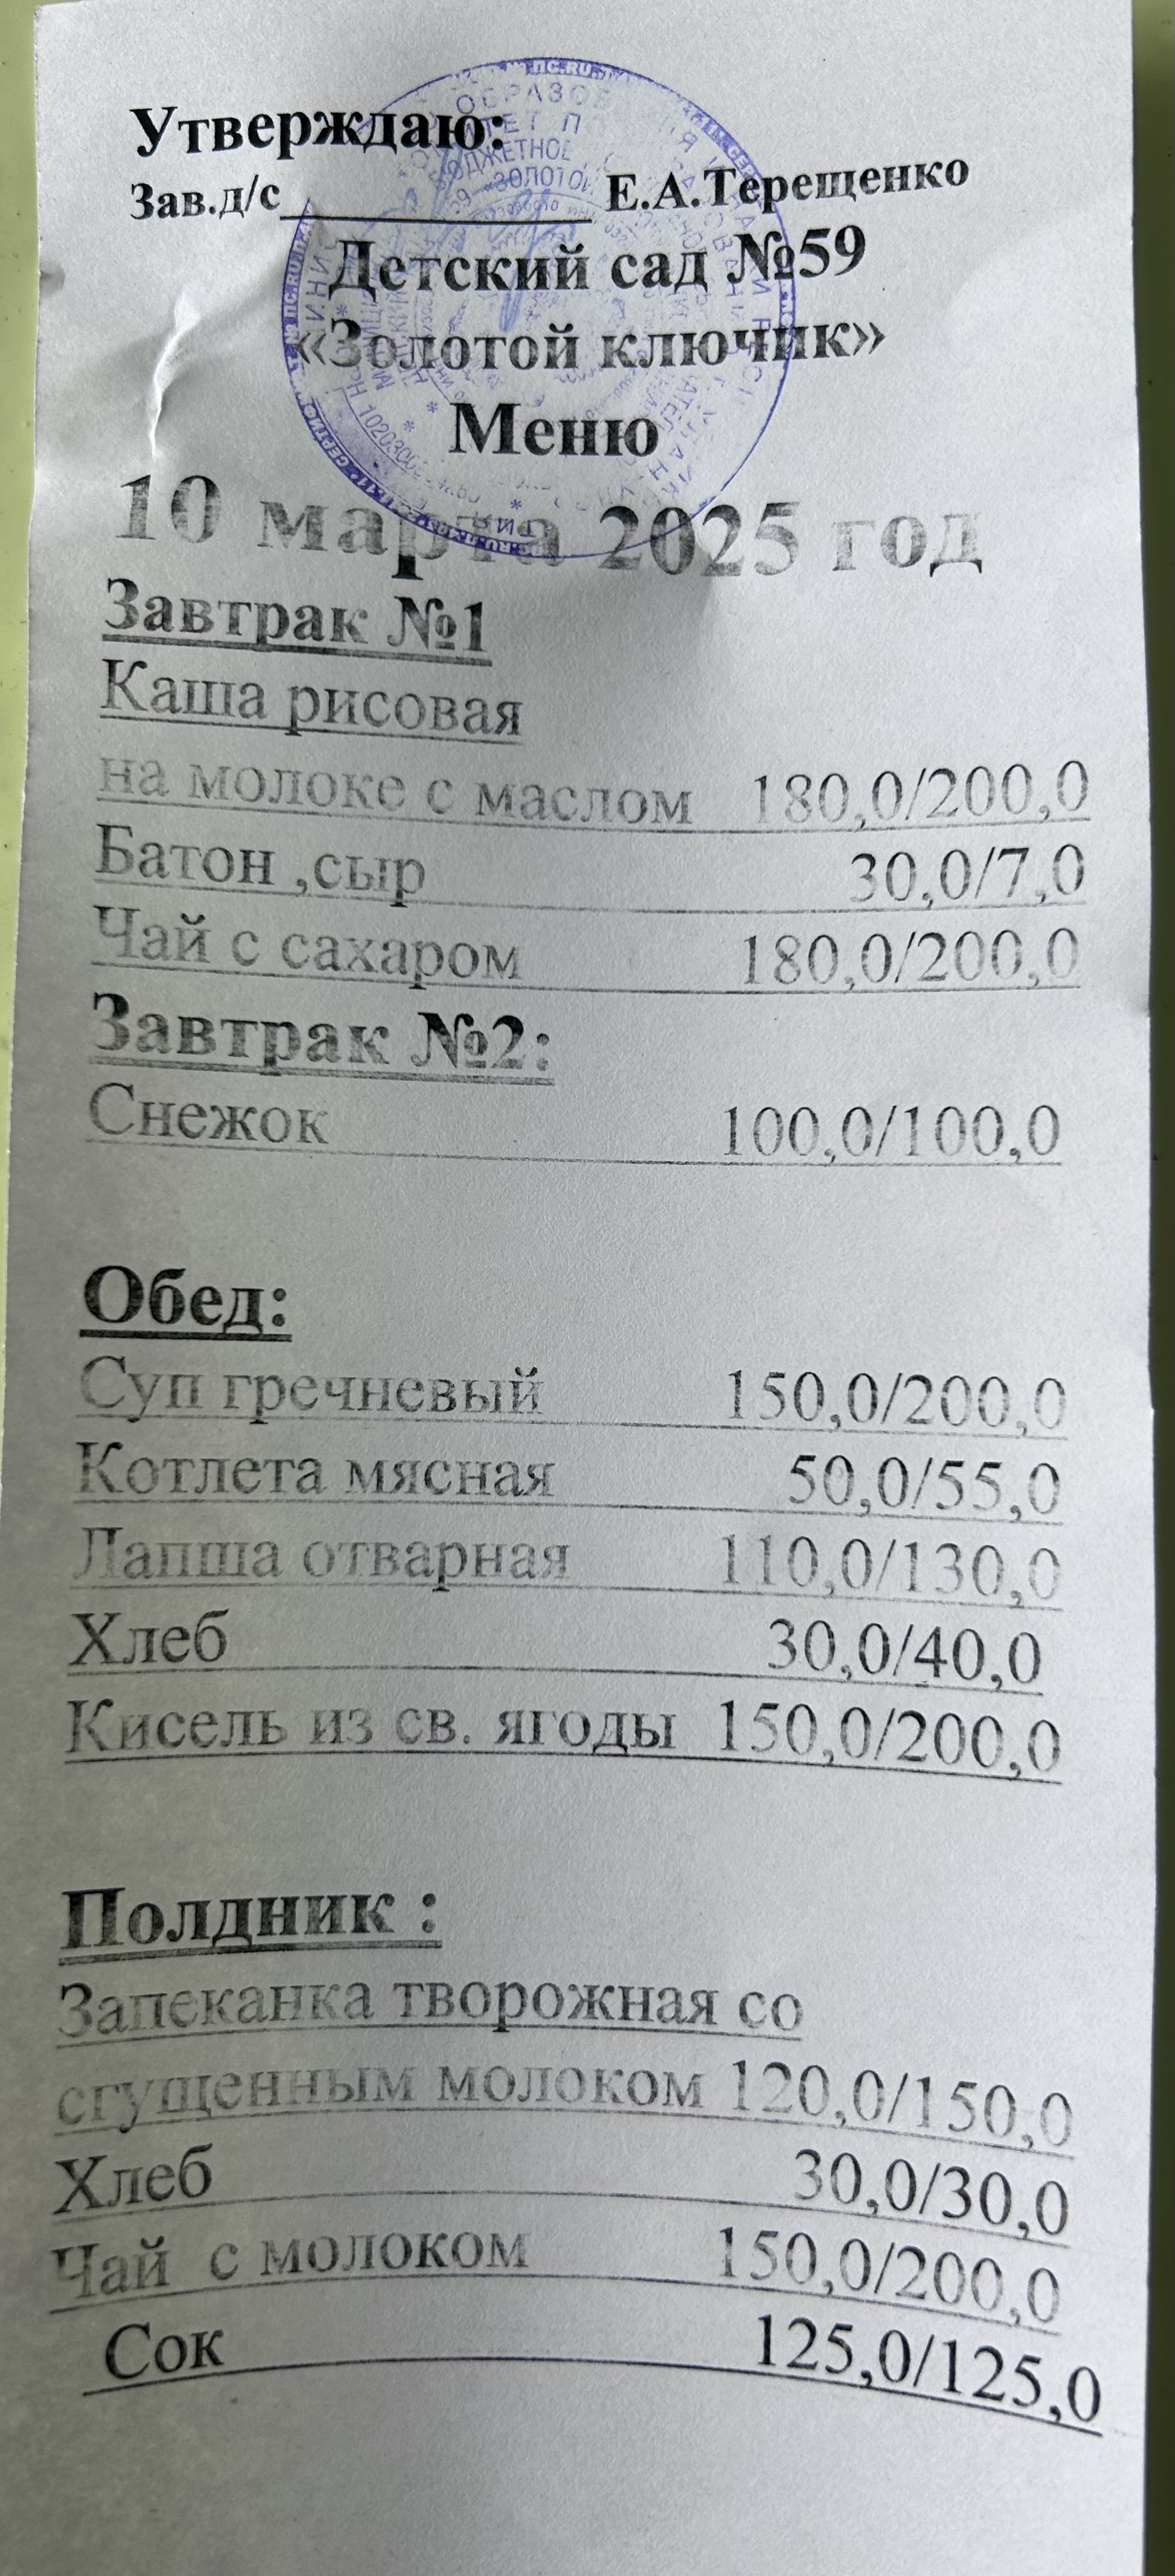 Утверждаю:
Зав.д/с Е.А.Терещенко
Детский сад №59
«Золотой ключик»
Меню
10 марта 2025 год
Завтрак №1
Каша рисовая
на молоке с маслом 180,0/200,0
Батон ,сыр 30,0/7,0
Чай с сахаром 180,0/200,0
Завтрак №2:
Снежок 100,0/100,0
Обед:
Суп гречневый 150,0/200,0
Котлета мясная 50,0/55,0
Лапша отварная 110,0/130,0
Хлеб 30,0/40,0
Кисель из св. ягоды 150,0/200,0
Полдник :
Запеканка творожная со
сгущенным молоком 120,0/150,0
Хлеб 30,0/30,0
Чай с молоком 150,0/200,0
Сок 125,0/125,0